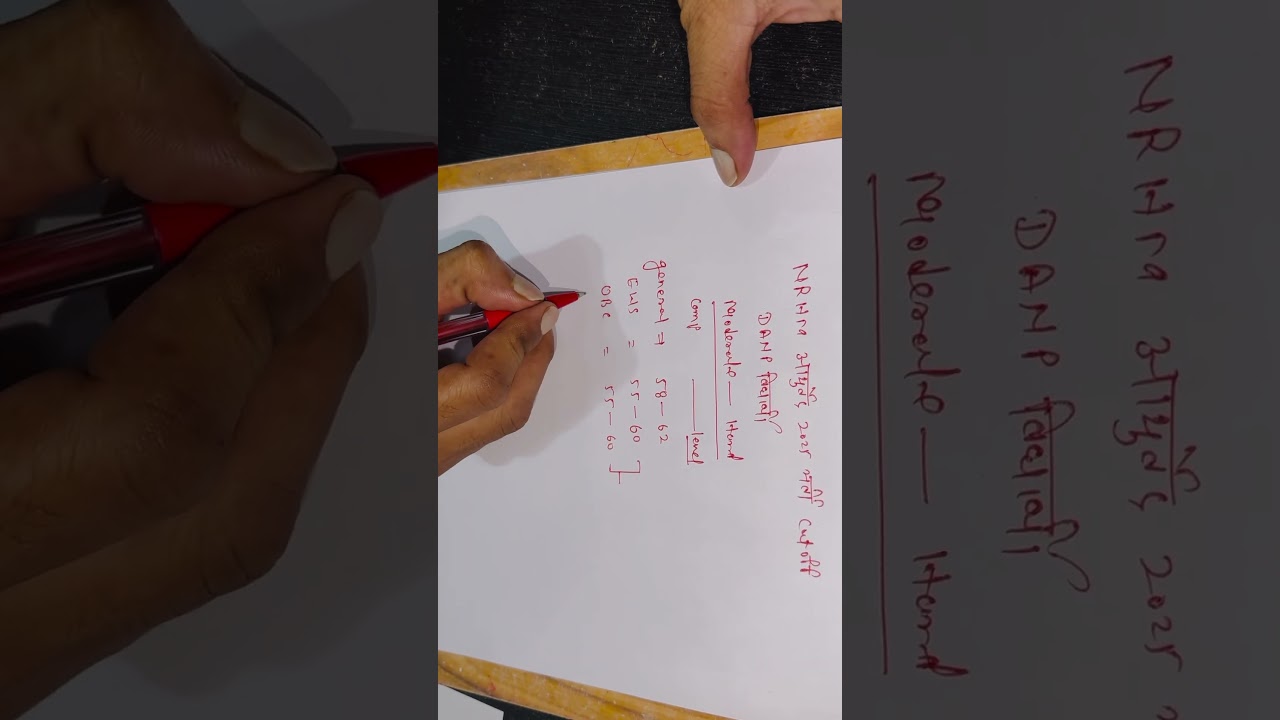 NRHM आयुर्वेद 2025 भर्ती Cutoff
DANP विद्यार्थी
Moderate — Hard
Comp — level
general ⇒ 58 — 62
EWS = 55 — 60
OBC = 55 — 60 }